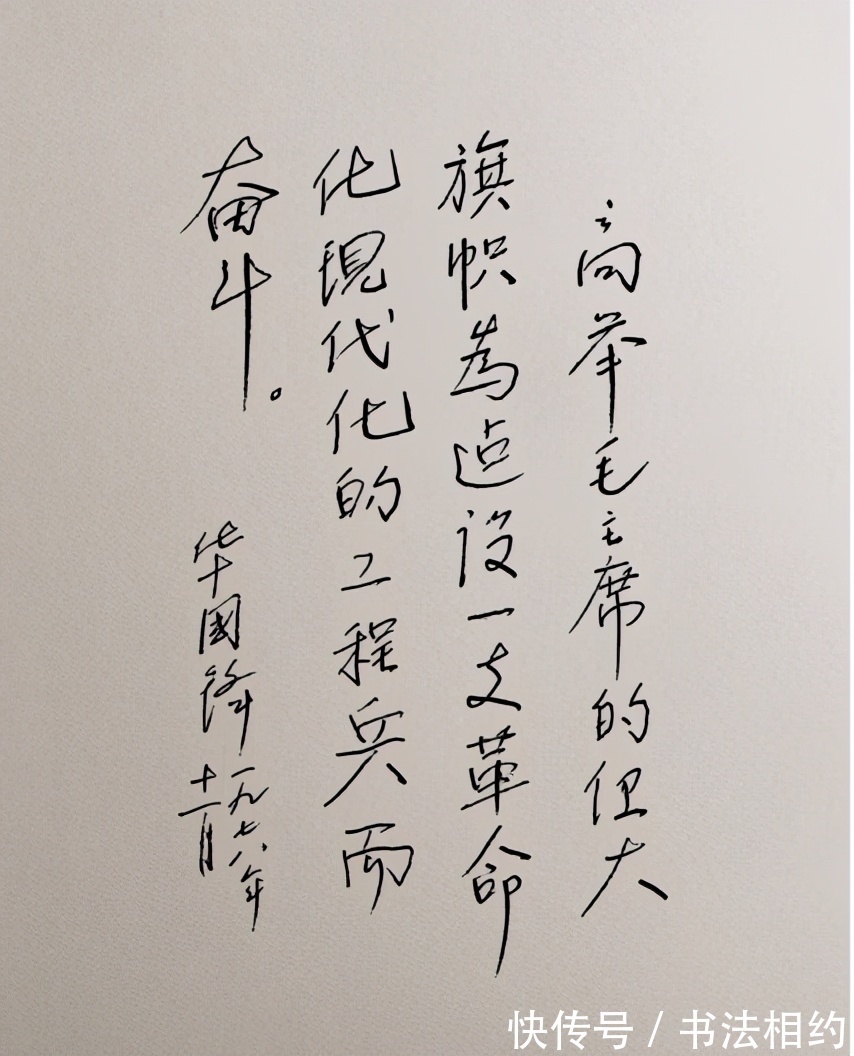 高举毛主席的伟大
旗帜為建设一支革命
化現代化的工程兵而
奋斗。
华國锋
一九七八年
十一月
快传号 / 书法相约